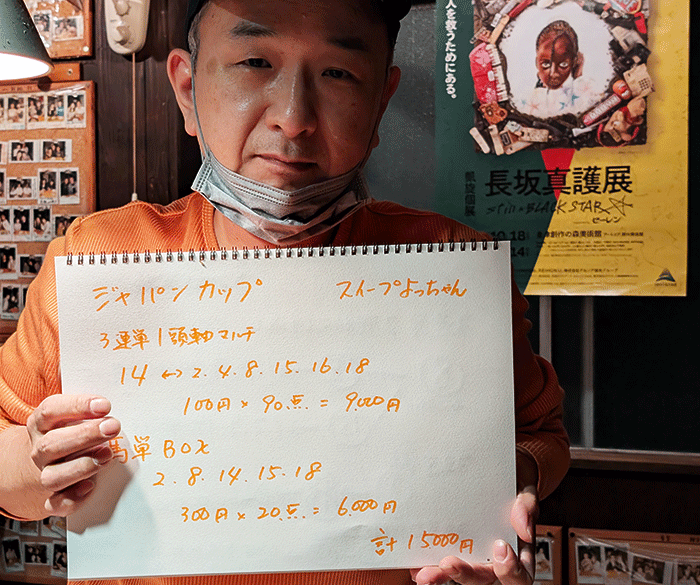 人を救うためにある。
凱旋個展
長坂真護展
Still A BLACK STAR
10.18
ジャパンカップ スイープよっちゃん
3連単1頭軸マルチ
14 ↔ 2.4.8.15.16.18
100円×90点=9,000円
馬単BOX
2.8.14.15.18
300円×20点=6000円
計15000円